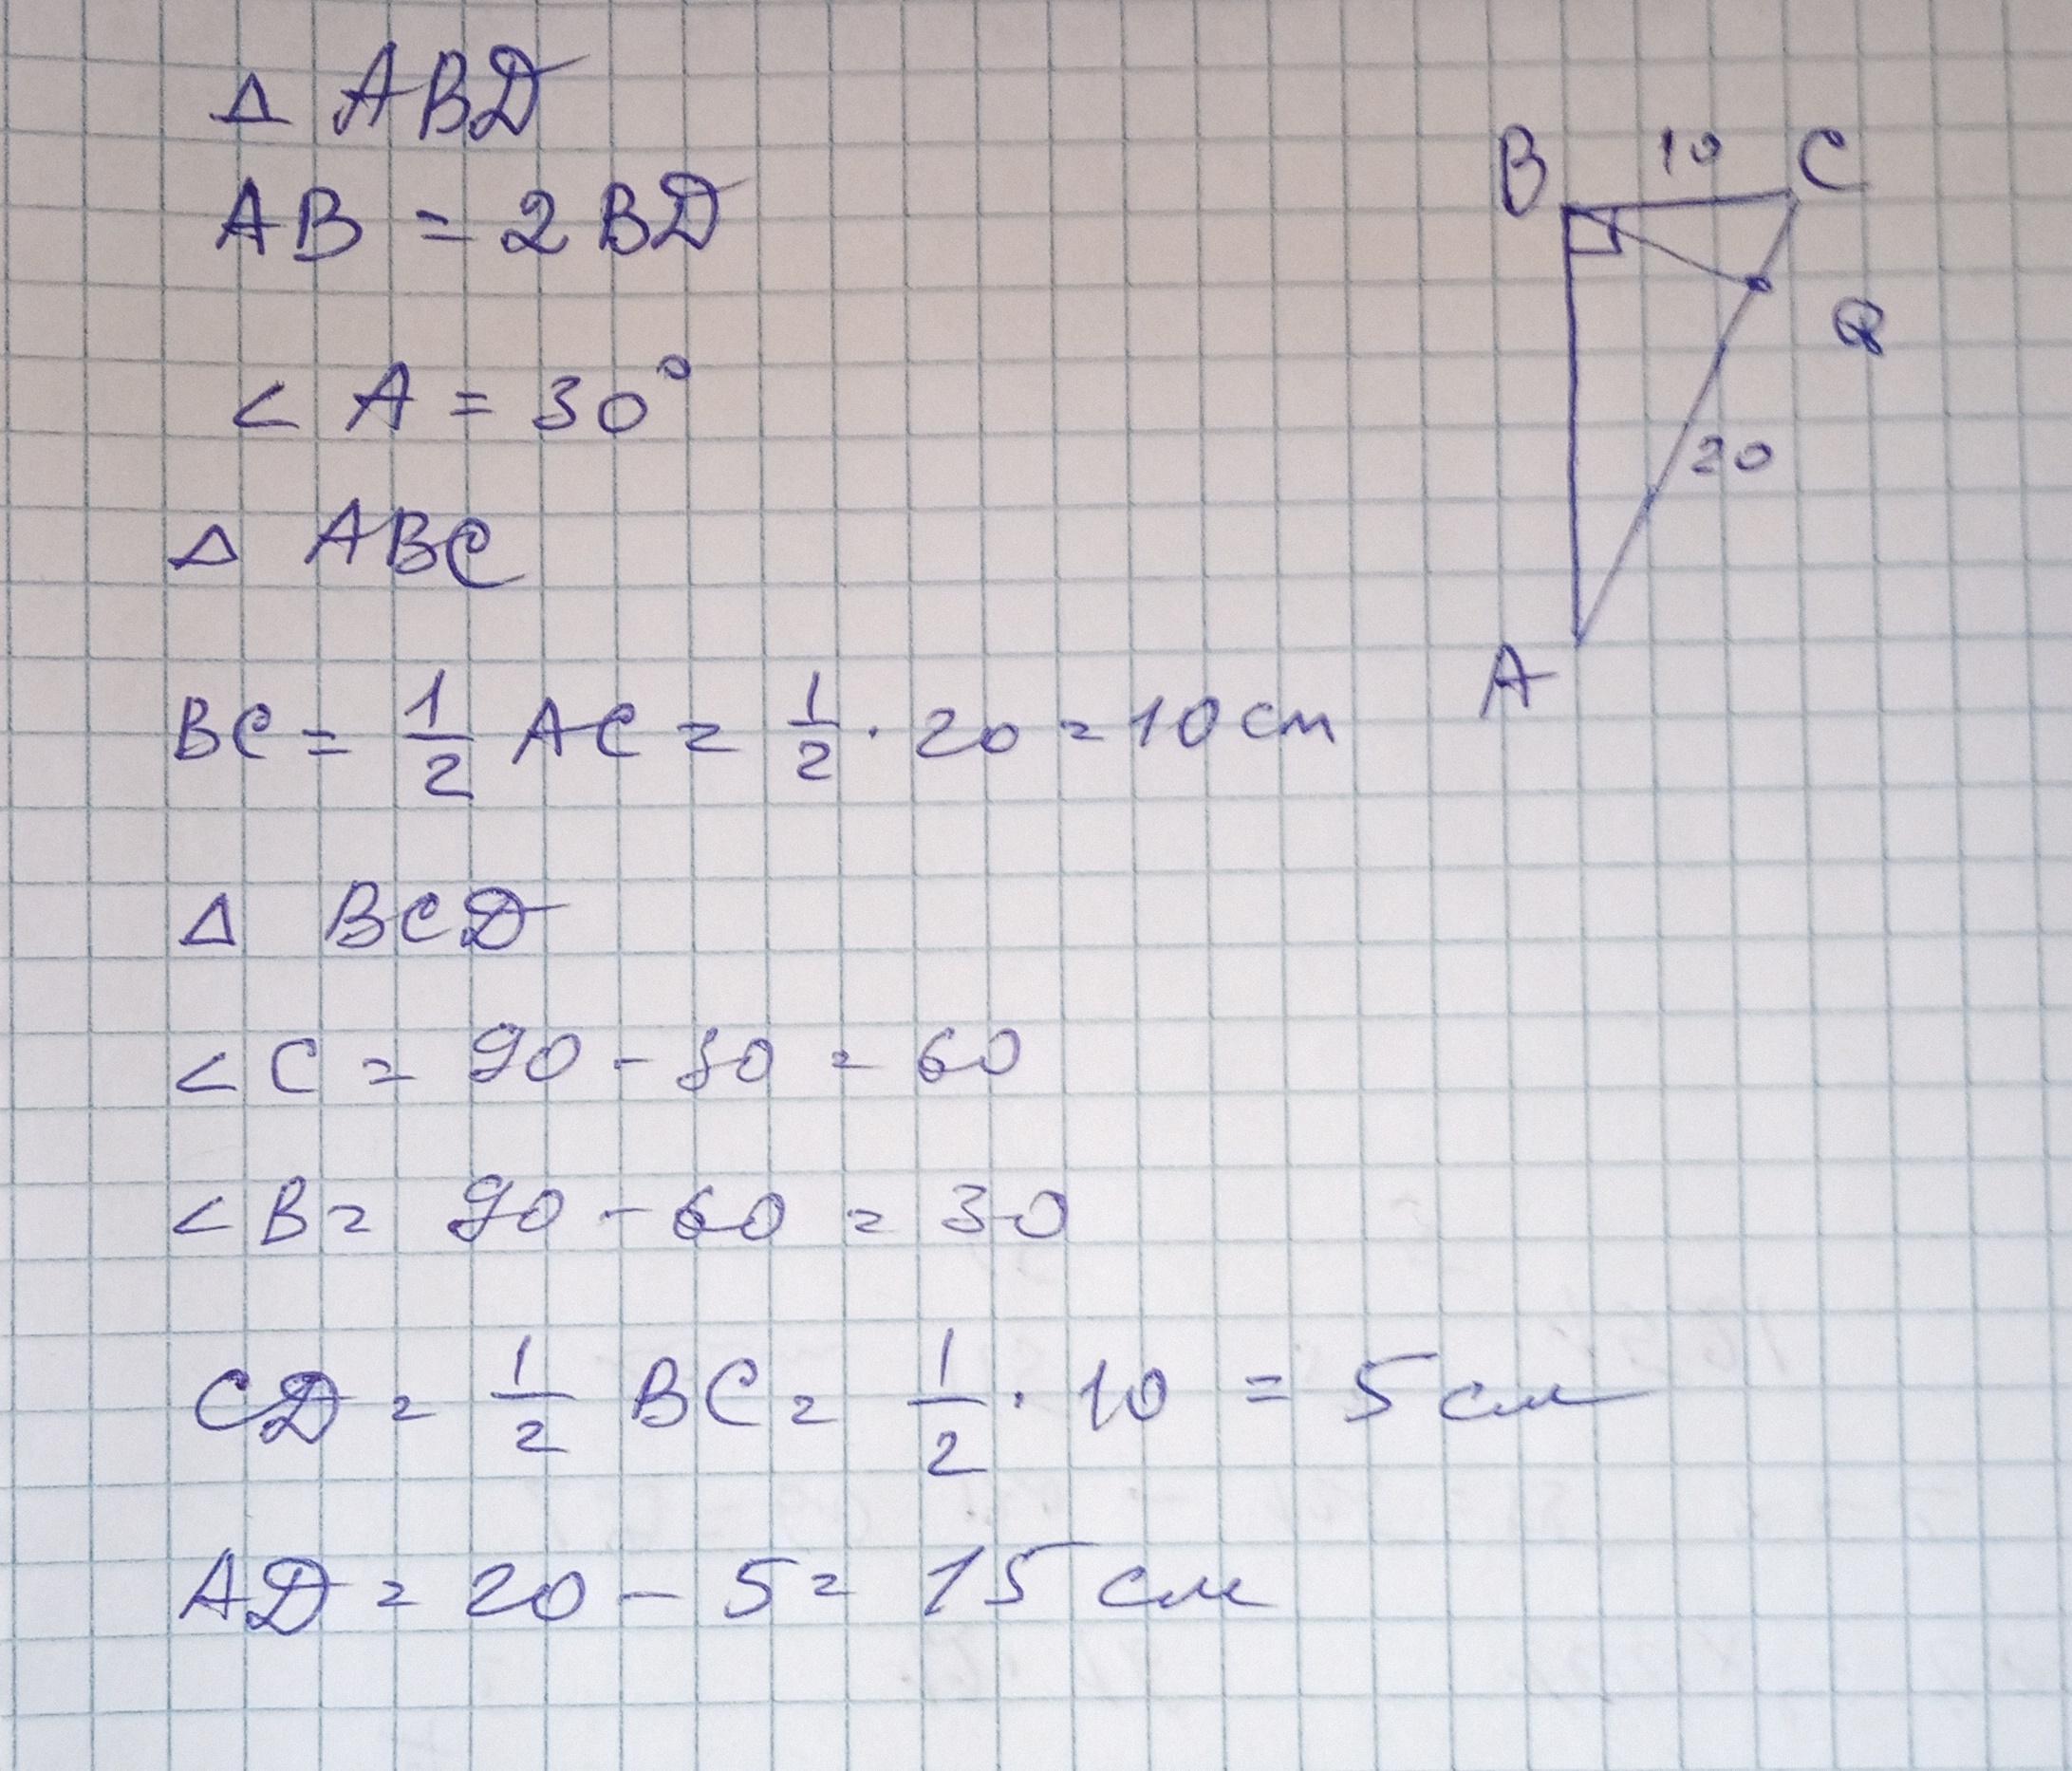 △ ABD
AB = 2BD
< A = 30°
△ ABC
BC = 1/2 AC = 1/2 · 20 = 10 см
△ BCD
< C = 90 - 30 = 60
< B = 90 - 60 = 30
CD = 1/2 BC = 1/2 · 10 = 5 см
AD = 20 - 5 = 15 см
B 10 C
20
A